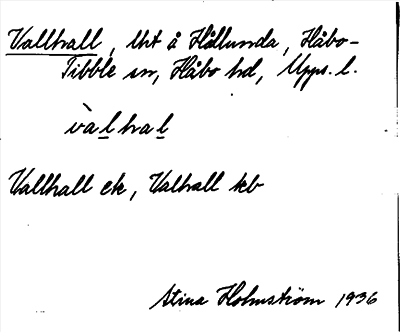 Vallhall, lht å Hällunda, Håbo-
Tibble sn, Håbo hd, Upps. l.
vàlhal
Vallhall ek, Valhall kb
Stina Holmström 1936